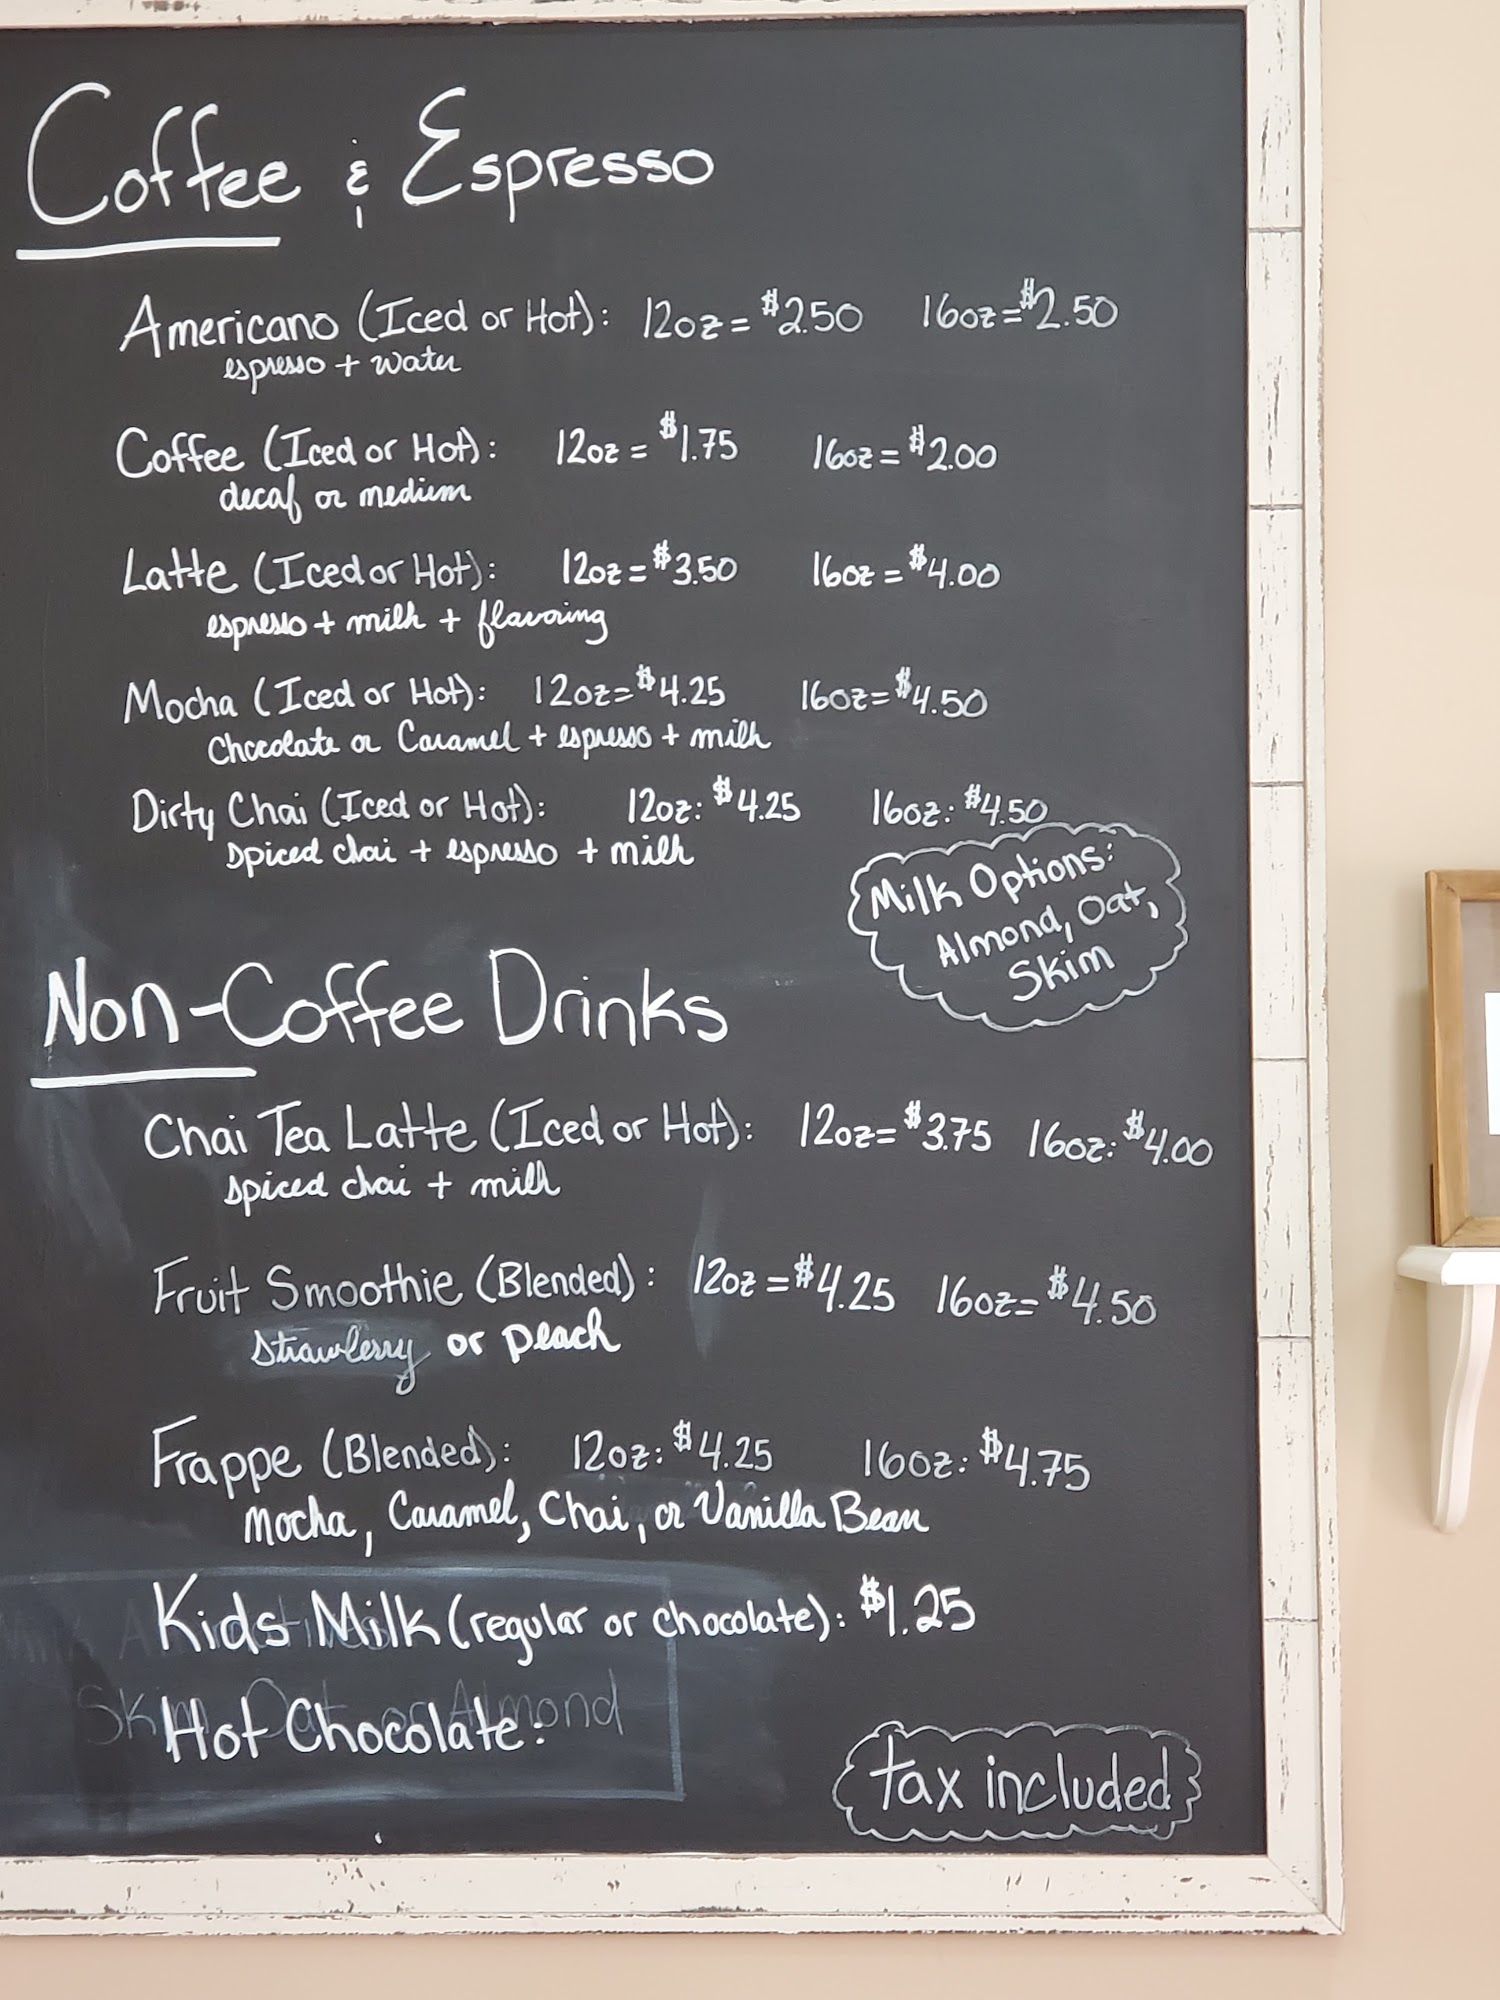 Coffee & Espresso
Americano (Iced or Hot): 12oz = $2.50 16oz = $2.50
espresso + water
Coffee (Iced or Hot): 12oz = $1.75 16oz = $2.00
decaf or medium
Latte (Iced or Hot): 12oz = $3.50 16oz = $4.00
espresso + milk + flavoring
Mocha (Iced or Hot): 12oz = $4.25 16oz = $4.50
Chocolate or Caramel + espresso + milk
Dirty Chai (Iced or Hot): 12oz: $4.25 16oz: $4.50
spiced chai + espresso + milk
Milk Options:
Almond, Oat,
Skim
Non-Coffee Drinks
Chai Tea Latte (Iced or Hot): 12oz = $3.75 16oz: $4.00
spiced chai + milk
Fruit Smoothie (Blended): 12oz = $4.25 16oz = $4.50
strawberry or peach
Frappe (Blended): 12oz: $4.25 16oz: $4.75
Mocha, Caramel, Chai, or Vanilla Bean
Kids Milk (regular or chocolate): $1.25
Hot Chocolate:
tax included